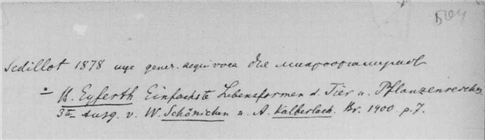 Sedillot 1878 gener. aequivoca микроорганизмов
B. Eyferth Einfachste Lebensformen d. Tier u. Pflanzenreiches
3te Ausg. v. W. Schönichen u. A. Kalberlach. Br. 1900 p. 7.